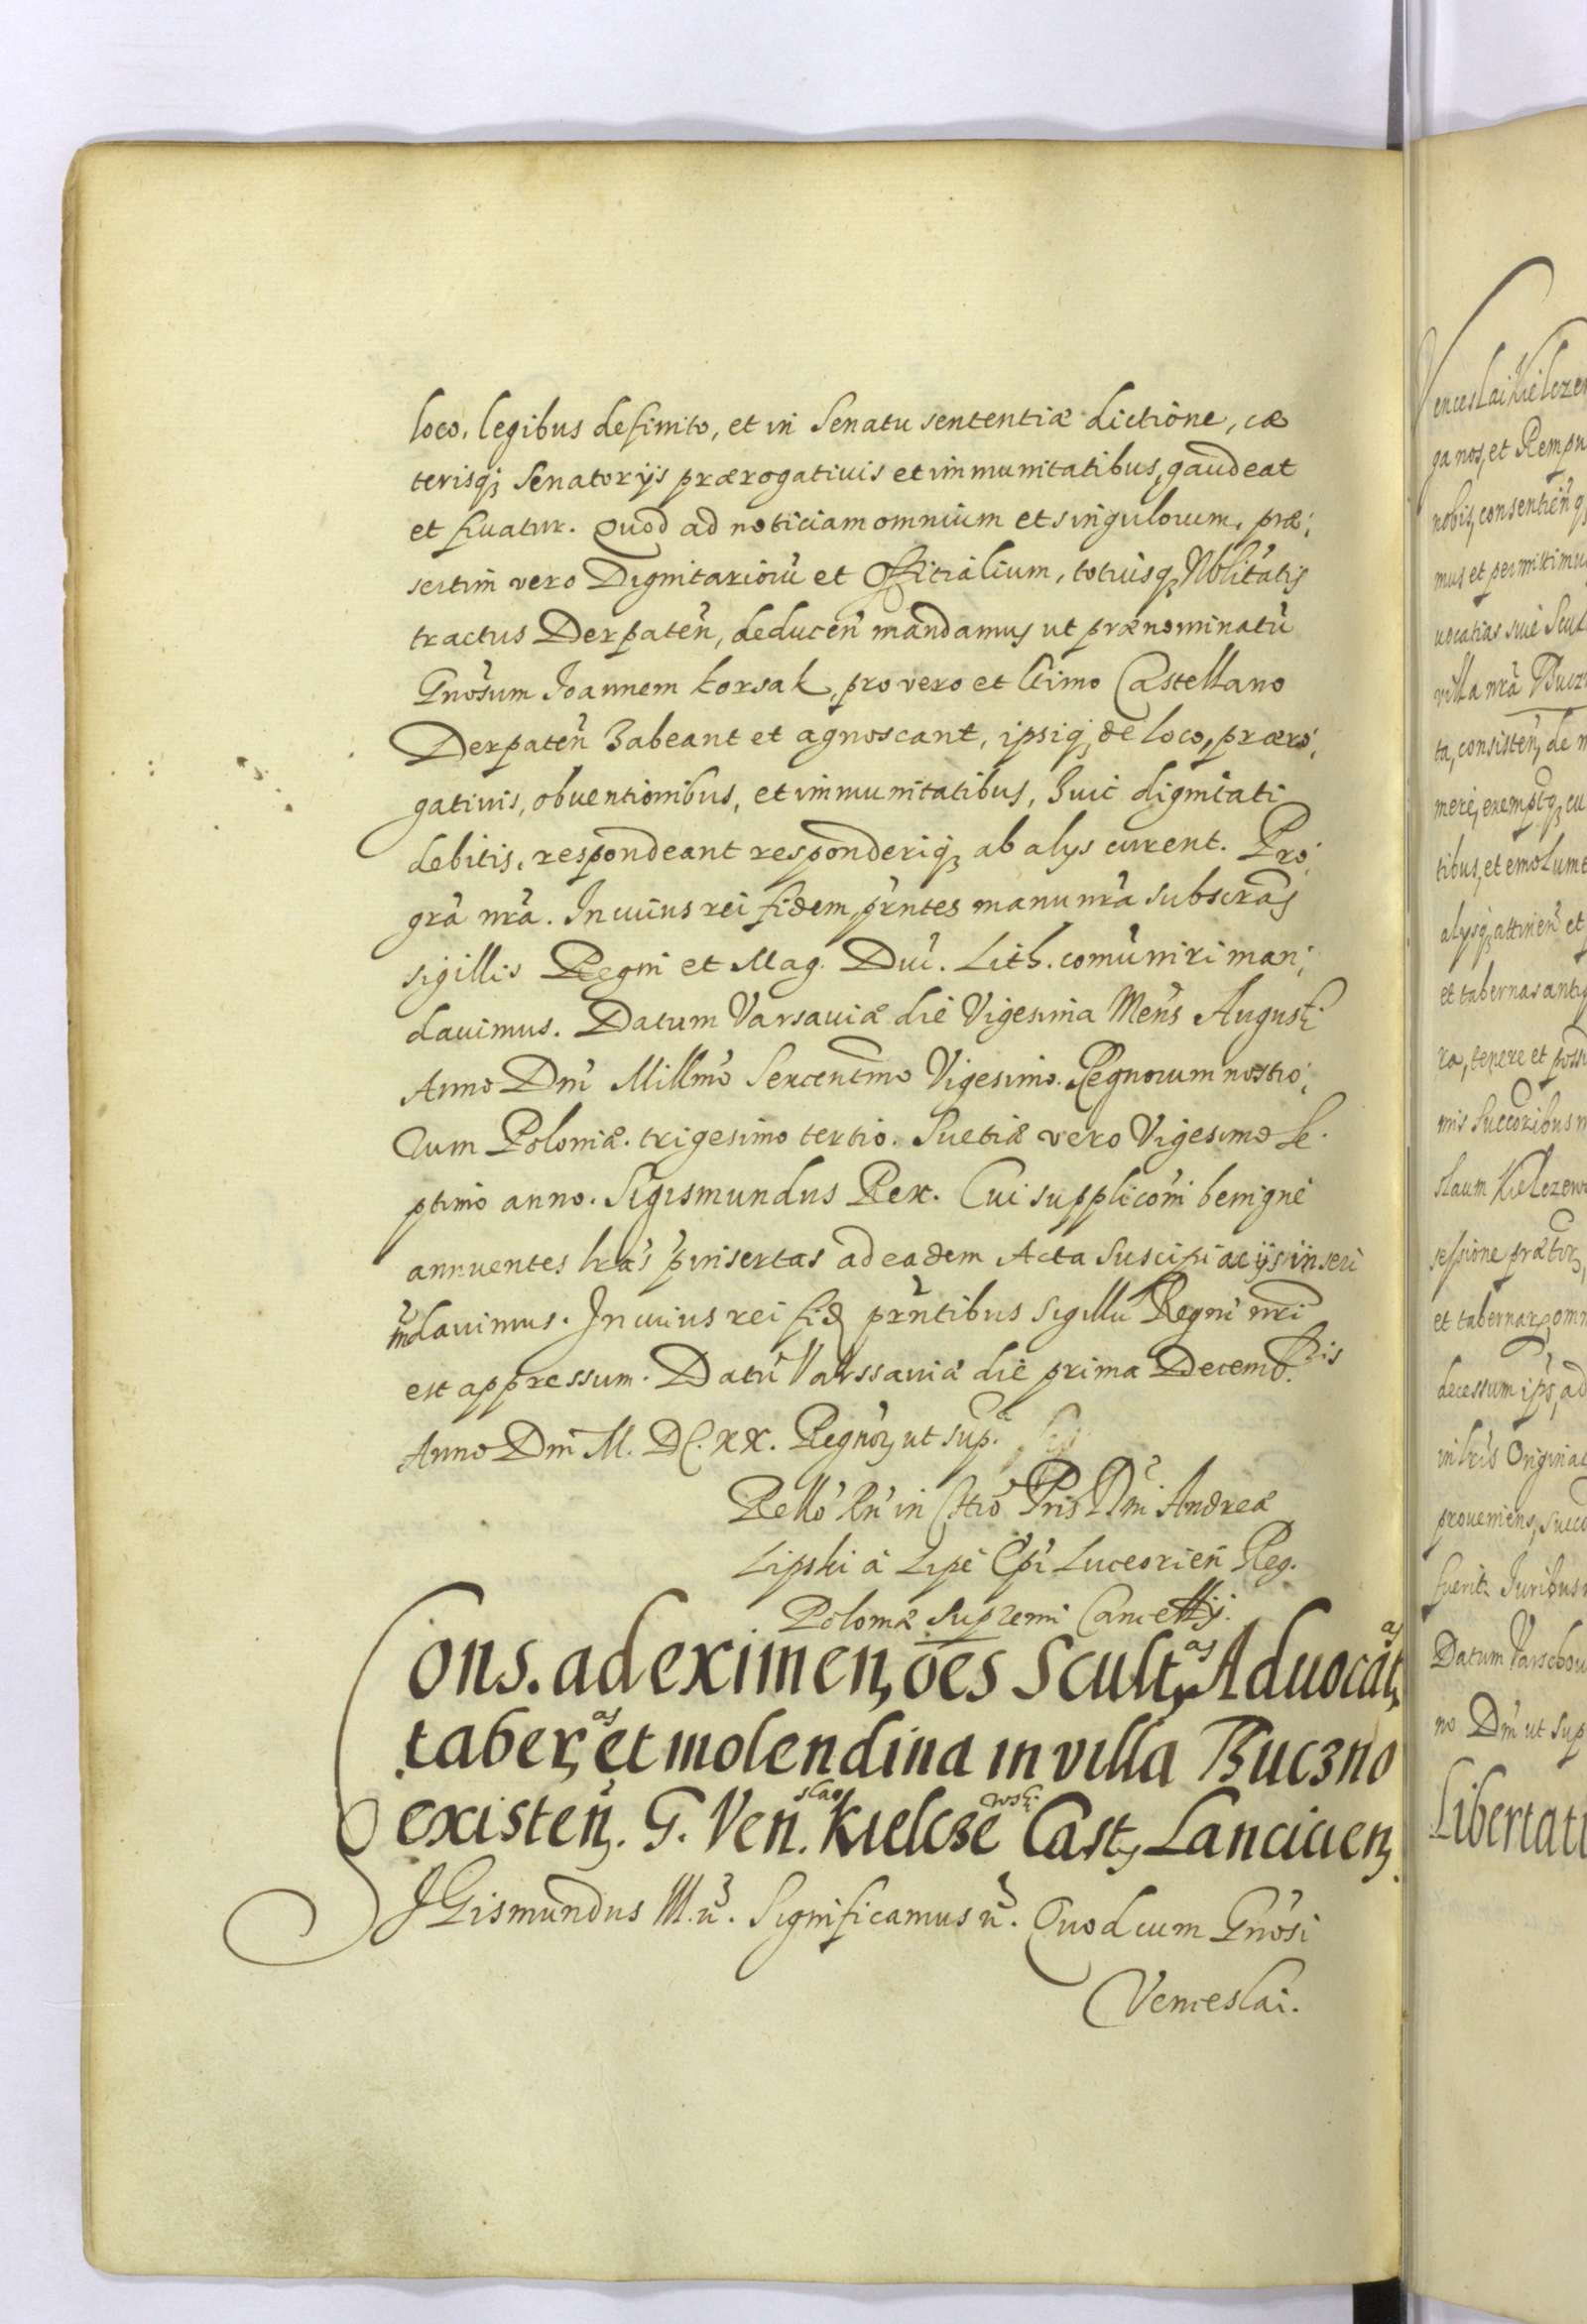 loco, legibus definito, et in Senatu sententiæ dictione, cæ
terisq; Senatorijs prærogativis et immunitatibus, gaudeat
et fruatur. Quod ad noticiam omnium et singulorum, præ:
sertim vero Dignitarioru et Offitialium, totiusq; Nobilitatis
tractus Derpaten, deducen mandamus ut prænominatu
Gnosum Joannem Korsak, pro vero et ltimo Castellano
Derpaten habeant et agnoscant, ipsiq; de loco, præro:
gativis, obventionibus, et immunitatibus, huic dignitati
debitis, respondeant responderiq; ab alijs curent. Pro
gra nra. In cuius rei fidem, prntes manu nra subscras
sigillis Regni et Mag. Duc. Lith. comuniri man:
davimus. Datum Varsaviæ die Vigesima Mens Augusti
Anno Dni Millmo Sexcentmo Vigesimo. Regnorum nostro:
rum Poloniæ. trigesimo tertio. Suetiæ vero Vigesimo Se:
ptimo anno. Sigismundus Rex. Cui suppliconi benigne
annuentes lras pinsertas ad eadem Acta suscipi ac ijs inseri
mdavimus. In cuius rei fid prntibus sigillu Regni nri
est appressum. Datu Varssaviæ die prima Decembris
Anno Dni M. DC. XX. Regnor ut sup.
Rello Rn in Chto Pris Dni Andreæ
Lipski à Lipe Epi Luceorien Reg.
Poloniæ Supremi Cancellrij.
Cons. ad eximen, oes Scultas, Advocatas,
taberas, et molendina in villa Buczno
existen. G. Venslao Kielczewski Cast, Lancicien,
SIGismundus III. &. Significamus &. Quod cum Gnosi
Venceslai.
enceslai Kielczew
ga nos, et Rempu
nobis, consentien q
mus et permittimu
vocatias sive Scul
villa nra Bucz
ta, consisten, de n
tibus, et emolume
alijsq; attinen et
et tabernas antiq
ra, tenere et poss
mis Successoribus n
slaum Kielczew
et tabernar, omn
decessum ips, ad
in lris Original
proveniens, succ
fuerit. Juribus
Datum Varschov
no Dni ut sup
Libertati